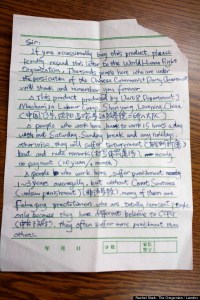 Sir:
If you occasionally buy this product, please
kindly resend this letter to the World Human Right
Organization. Thousands people here who are under
the persecution of the Chinese Communist Party Government
will thank and remember you forever.
This product produced by Unit 8, Department 2,
Masanjia Labour Camp, Shenyang, Liaoning, China
(中国,辽宁,沈阳,马三家
people who work here have to work 15 hours a day
without Saturday, Sunday break and any holidays,
otherwise, they will suffer torturement
beat and rude remark nearly
no payment (10 yuan/1 month).
people who work here, suffer punishment
1~3 years averagely, but without Court Sentence
many of them are
Falun gong practitioners who are totally innocent people
only because they have different believe to CCPG
they often suffer more punishment than
others.
年 月 日